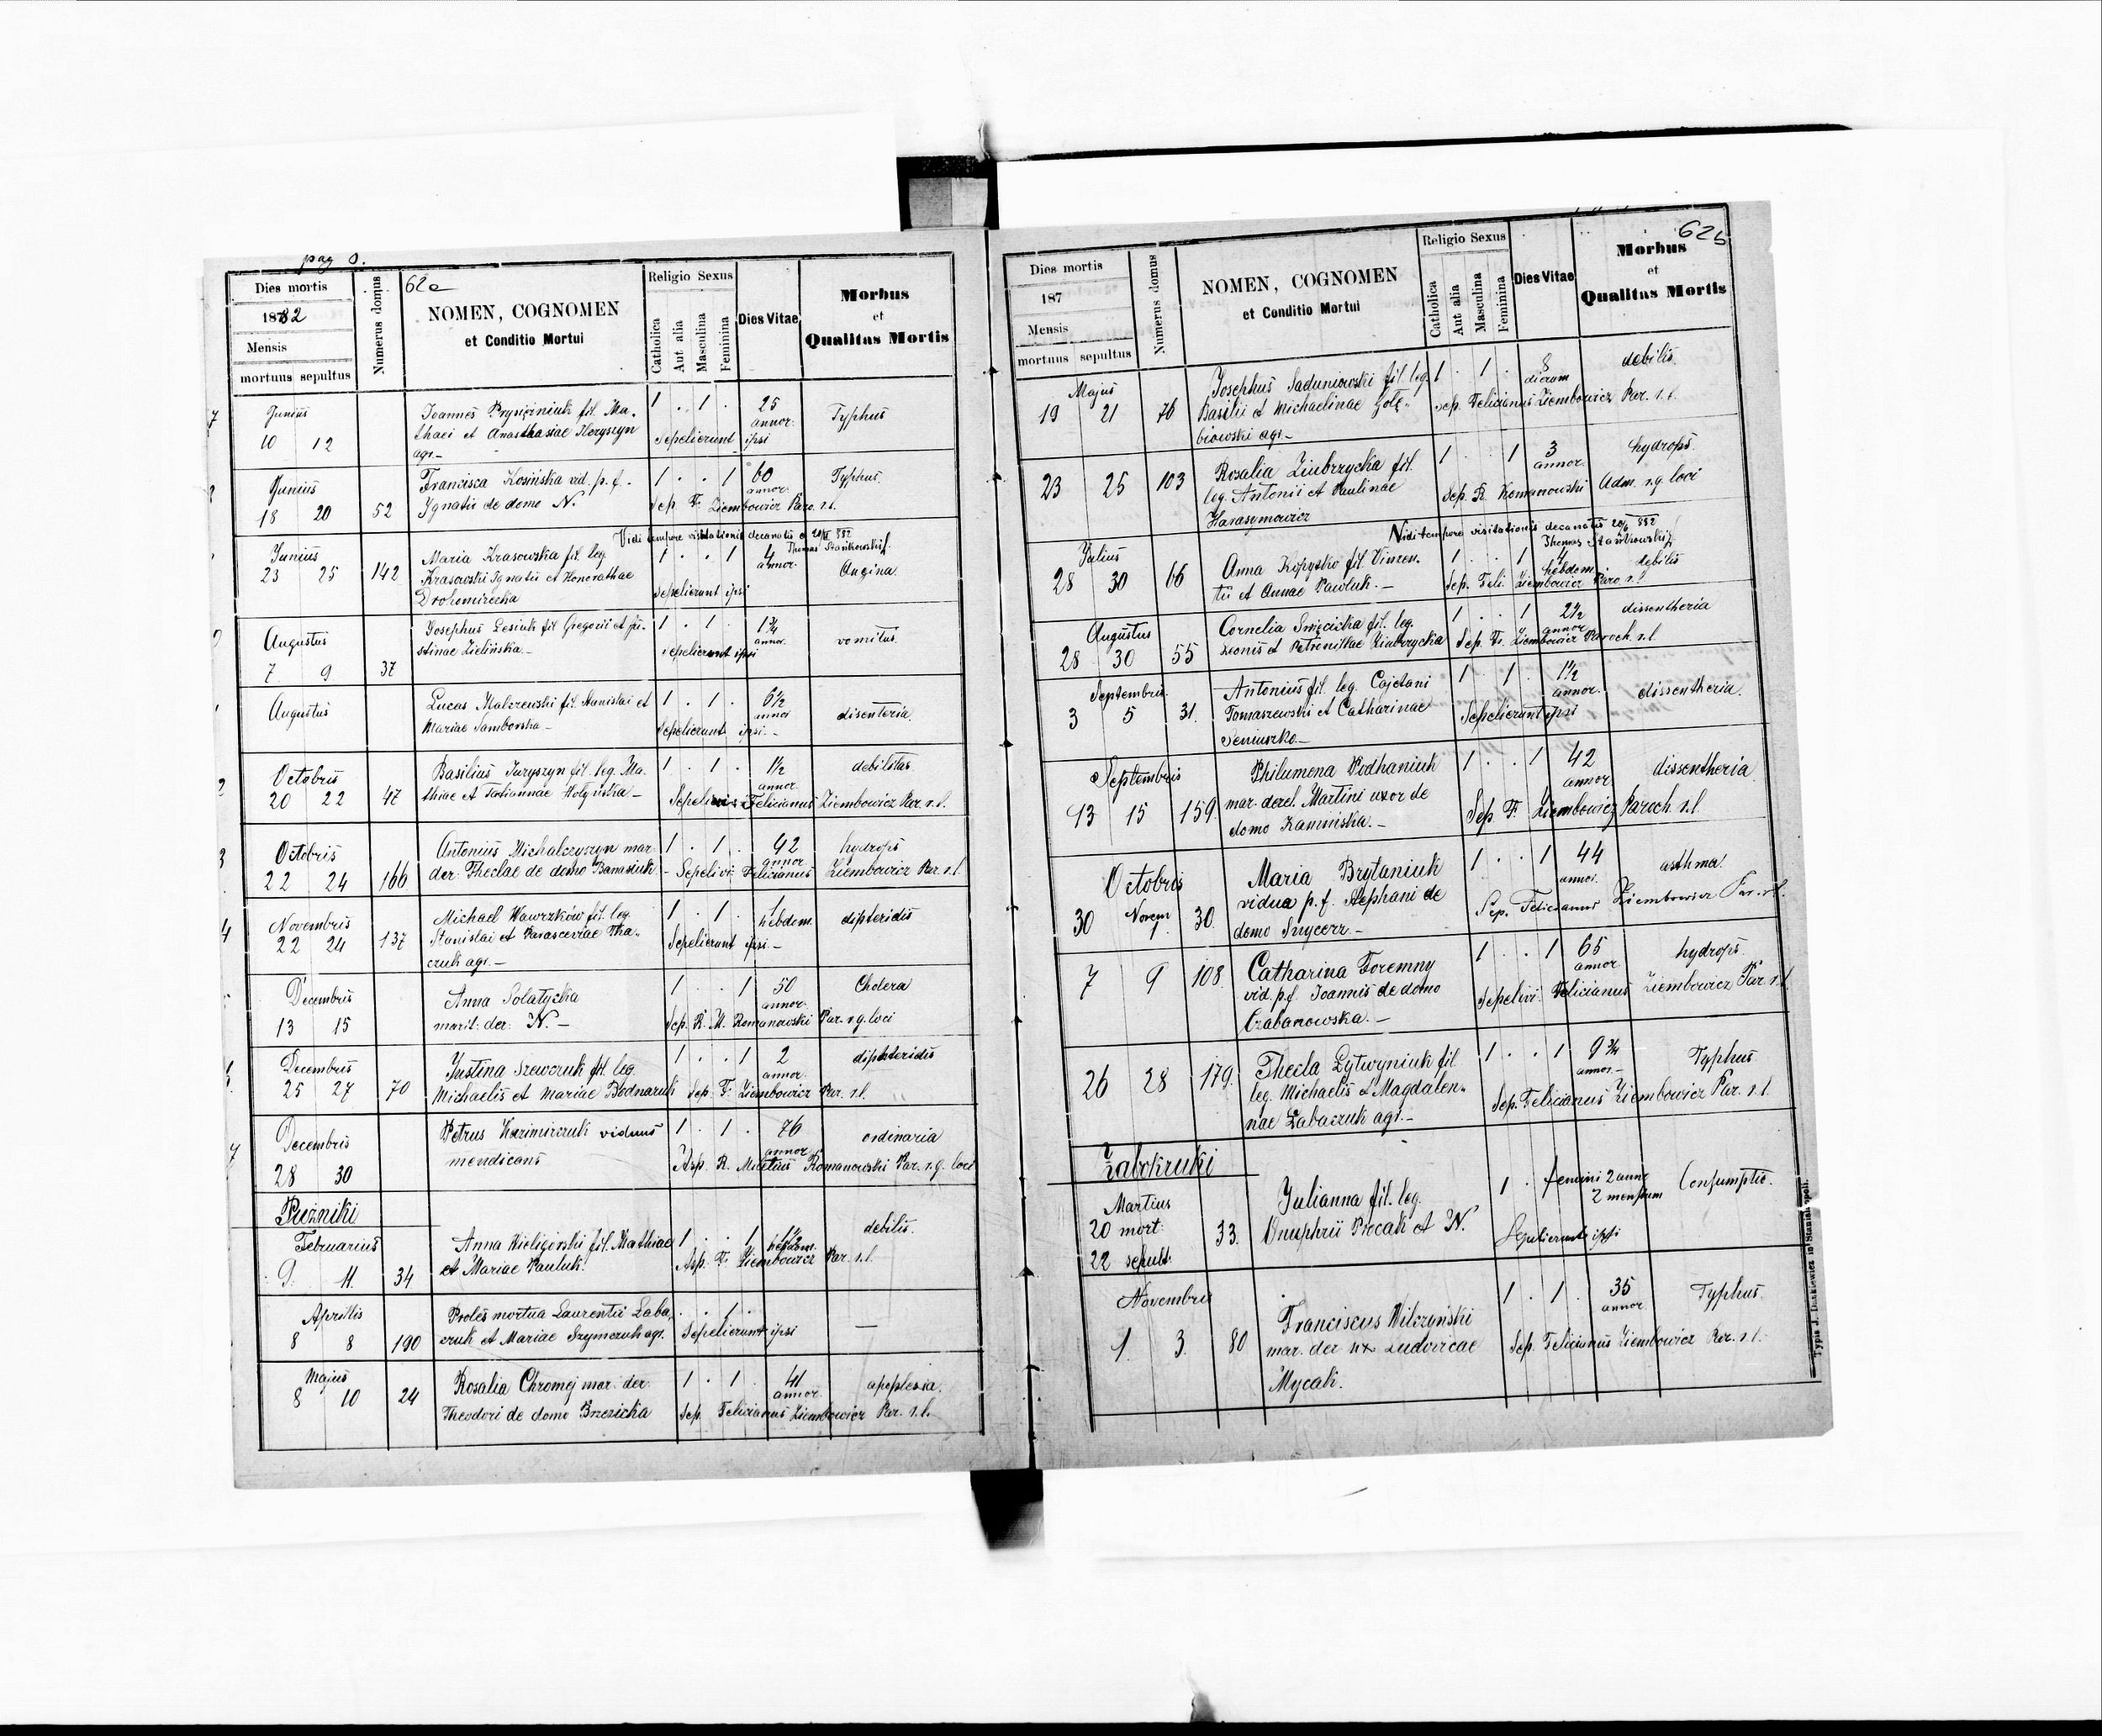 pag 0.
62a
Dies mortis
1882
Mensis
mortuus sepultus
Numerus domus
NOMEN, COGNOMEN
et Conditio Mortui
Religio Sexus
Catholica
Aut alia
Masculina
Feminina
Dies Vitae
Morbus
et
Qualitas Mortis
Junius
10 12
Joannes fil. Ma-
thaei et Anasthasiae Heryszyn
agr.-
1 . 1 .
25
annor.
Typhus
Sepelierunt ipsi
Junius
18 20 52
Francisca Kosińska vid. p. f.
Ignatii de domo N.
1 . . 1
60
annor.
Typhus
Sep F. Ziembowicz Paro. r.l.
Vidi tempore visitationis decanatis
Thomas Stańkowski
Junius
23 25 142
Maria Krasowska fil. leg.
Krasowski Ignatii et Honorathae
Drohomirecka
1 . . 1
4
annor.
Angina
Sepelierunt ipsi
Augustus
7 9 37
Josephus Lesiuk fil Gregorii et Ju-
stinae Zielińska.-
1 . 1 .
1¾
annor.
vomitus
Sepelierunt ipsi
Augustus
Lucas Malczewski fil. Stanislai et
Mariae Samborska -
1 . 1 .
6½
annor
disenteria
Sepelierunt ipsi.-
Octobris
20 22 47
Basilius Juryszyn fil. leg. Ma-
thiae et Tatiannae
1 . 1 .
1½
annor.
debilitas
Felicianus Ziembowicz Par. r.l.
Octobris
22 24 166
Antonius Michalczyszyn mar.
der. Theclae de domo Banasiuk
1 . 1 .
42
annor
hydrops
Sepelivi Felicianus Ziembowicz Par. r.l.
Novembris
22 24 137
Michael Wawrzków fil. leg.
Stanislai et Parasceviae Tka-
czuk agr. -
1 . 1 .
1
hebdom.
dipteridis
Sepelierunt ipsi.-
Decembris
13 15
Anna Solatycka
marit: der: N. -
1 . . 1
50
annor.
Cholera
Sep. R. M. Romanowski Par. r.g. loci
Decembris
25 27 70
Justina Szewczuk fil. leg.
Michaelis et Mariae Bodnaruk
1 . . 1
2
annor.
diphteridis
Sep. F. Ziembowicz Par. r.l.
Decembris
28 30
Petrus Kazimirczuk viduus
mendicans
1 . 1 .
76
annor
ordinaria
R. Romanowski Par. r.g. loci
Puźniki
Februarius
9. 11. 34
Anna fil. Mathiae
et Mariae Pauluk.
1 . . 1
1½
hebdom.
debilis.
F. Ziembowicz Par. r.l.
Aprillis
8 8 190
Proles mortua Laurentii Laba-
czuk et Mariae Szymczuk agr.
. . 1 .
Sepelierunt ipsi
—
Majus
8 10 24
Rosalia Chromej mar. der.
Theodori de domo Brzezicka
1 . 1 .
41
annor
apoplexia.
Sep. Felicianus Ziembowicz Par. r.l.
62b
Dies mortis
187
Mensis
mortuus sepultus
Numerus domus
NOMEN, COGNOMEN
et Conditio Mortui
Religio Sexus
Catholica
Aut alia
Masculina
Feminina
Dies Vitae
Morbus
et
Qualitas Mortis
Majus
19 21 76
Josephus Saduniowski fil. leg.
Basilii et Michaelinae Golę-
biowski agr.-
1 . 1 .
8
dierum
debilis.
Sep. Felicianus Ziembowicz Par. r.l.
23 25 103
Rosalia Ziubrzycka fil.
leg. Antonii et Paulinae
Harasymowicz
1 . . 1
3
annor.
hydrops.
Sep. R. Romanowski Adm. r.g. loci
Vidi tempore visitationis decanatis
Thomas Stańkowski
Julius
28 30 66
Anna Kopystko fil. Vincen-
tii et Annae Pawluk. -
1 . . 1
4
hebdom.
debilis
Sep. Feli. Ziembowicz Paro r.l.
Augustus
28 30 55
Cornelia Święcicka fil. leg.
Leonis et Petronillae Ziubrzycka
1 . . 1
2½
annor
dissentheria
Sep. F. Ziembowicz Paroch. r.l.
Septembris
3 5 31.
Antonius fil. leg. Cajetani
Tomaszewski et Catharinae
Seniuszko.-
1 . 1 .
1½
annor.
dissentheria.
Sepelierunt ipsi
Septembris
13 15 159.
Philumena Podhaniuk
mar. derel. Martini uxor de
domo Kamińska. -
1 . . 1
42
annor
dissentheria
Sep F. Ziembowicz Paroch. r.l.
Octobris
30 Novem 1. 30.
Maria Brytaniuk
vidua p. f. Stephani de
domo Snycerz -
1 . . 1
44
annor.
asthma
Sep. Felicianus Ziembowicz Par. r.l.
7 9 108.
Catharina Foremny
vid. p.f. Joannis de domo
Czabanowska. -
1 . . 1
65
annor
hydrops.
Sepelivi Felicianus Ziembowicz Par. r.l.
26 28 179.
Thecla Lytwyniuk fil.
leg. Michaelis & Magdalen-
nae Labaczuk agr.-
1 . . 1
9¾
annor.-
Typhus
Sep. Felicianus Ziembowicz Par. r.l.
Żabokruki
Martius
20 mort:
22 sepult:
33.
Julianna fil. leg.
Onuphrii Procak et N.
1 . femini 2 annor
2 mensium
Consumptio.
Sepelierunt ipsi
Novembris
1. 3. 80
Franciscus Wilczyński
mar. der ux Ludovicae
Mycak.
1 . 1 .
35
annor
Typhus.
Sep. Felicianus Ziembowicz Par. r.l.
Typis J. Dankiewicz in Stanislaopoli.